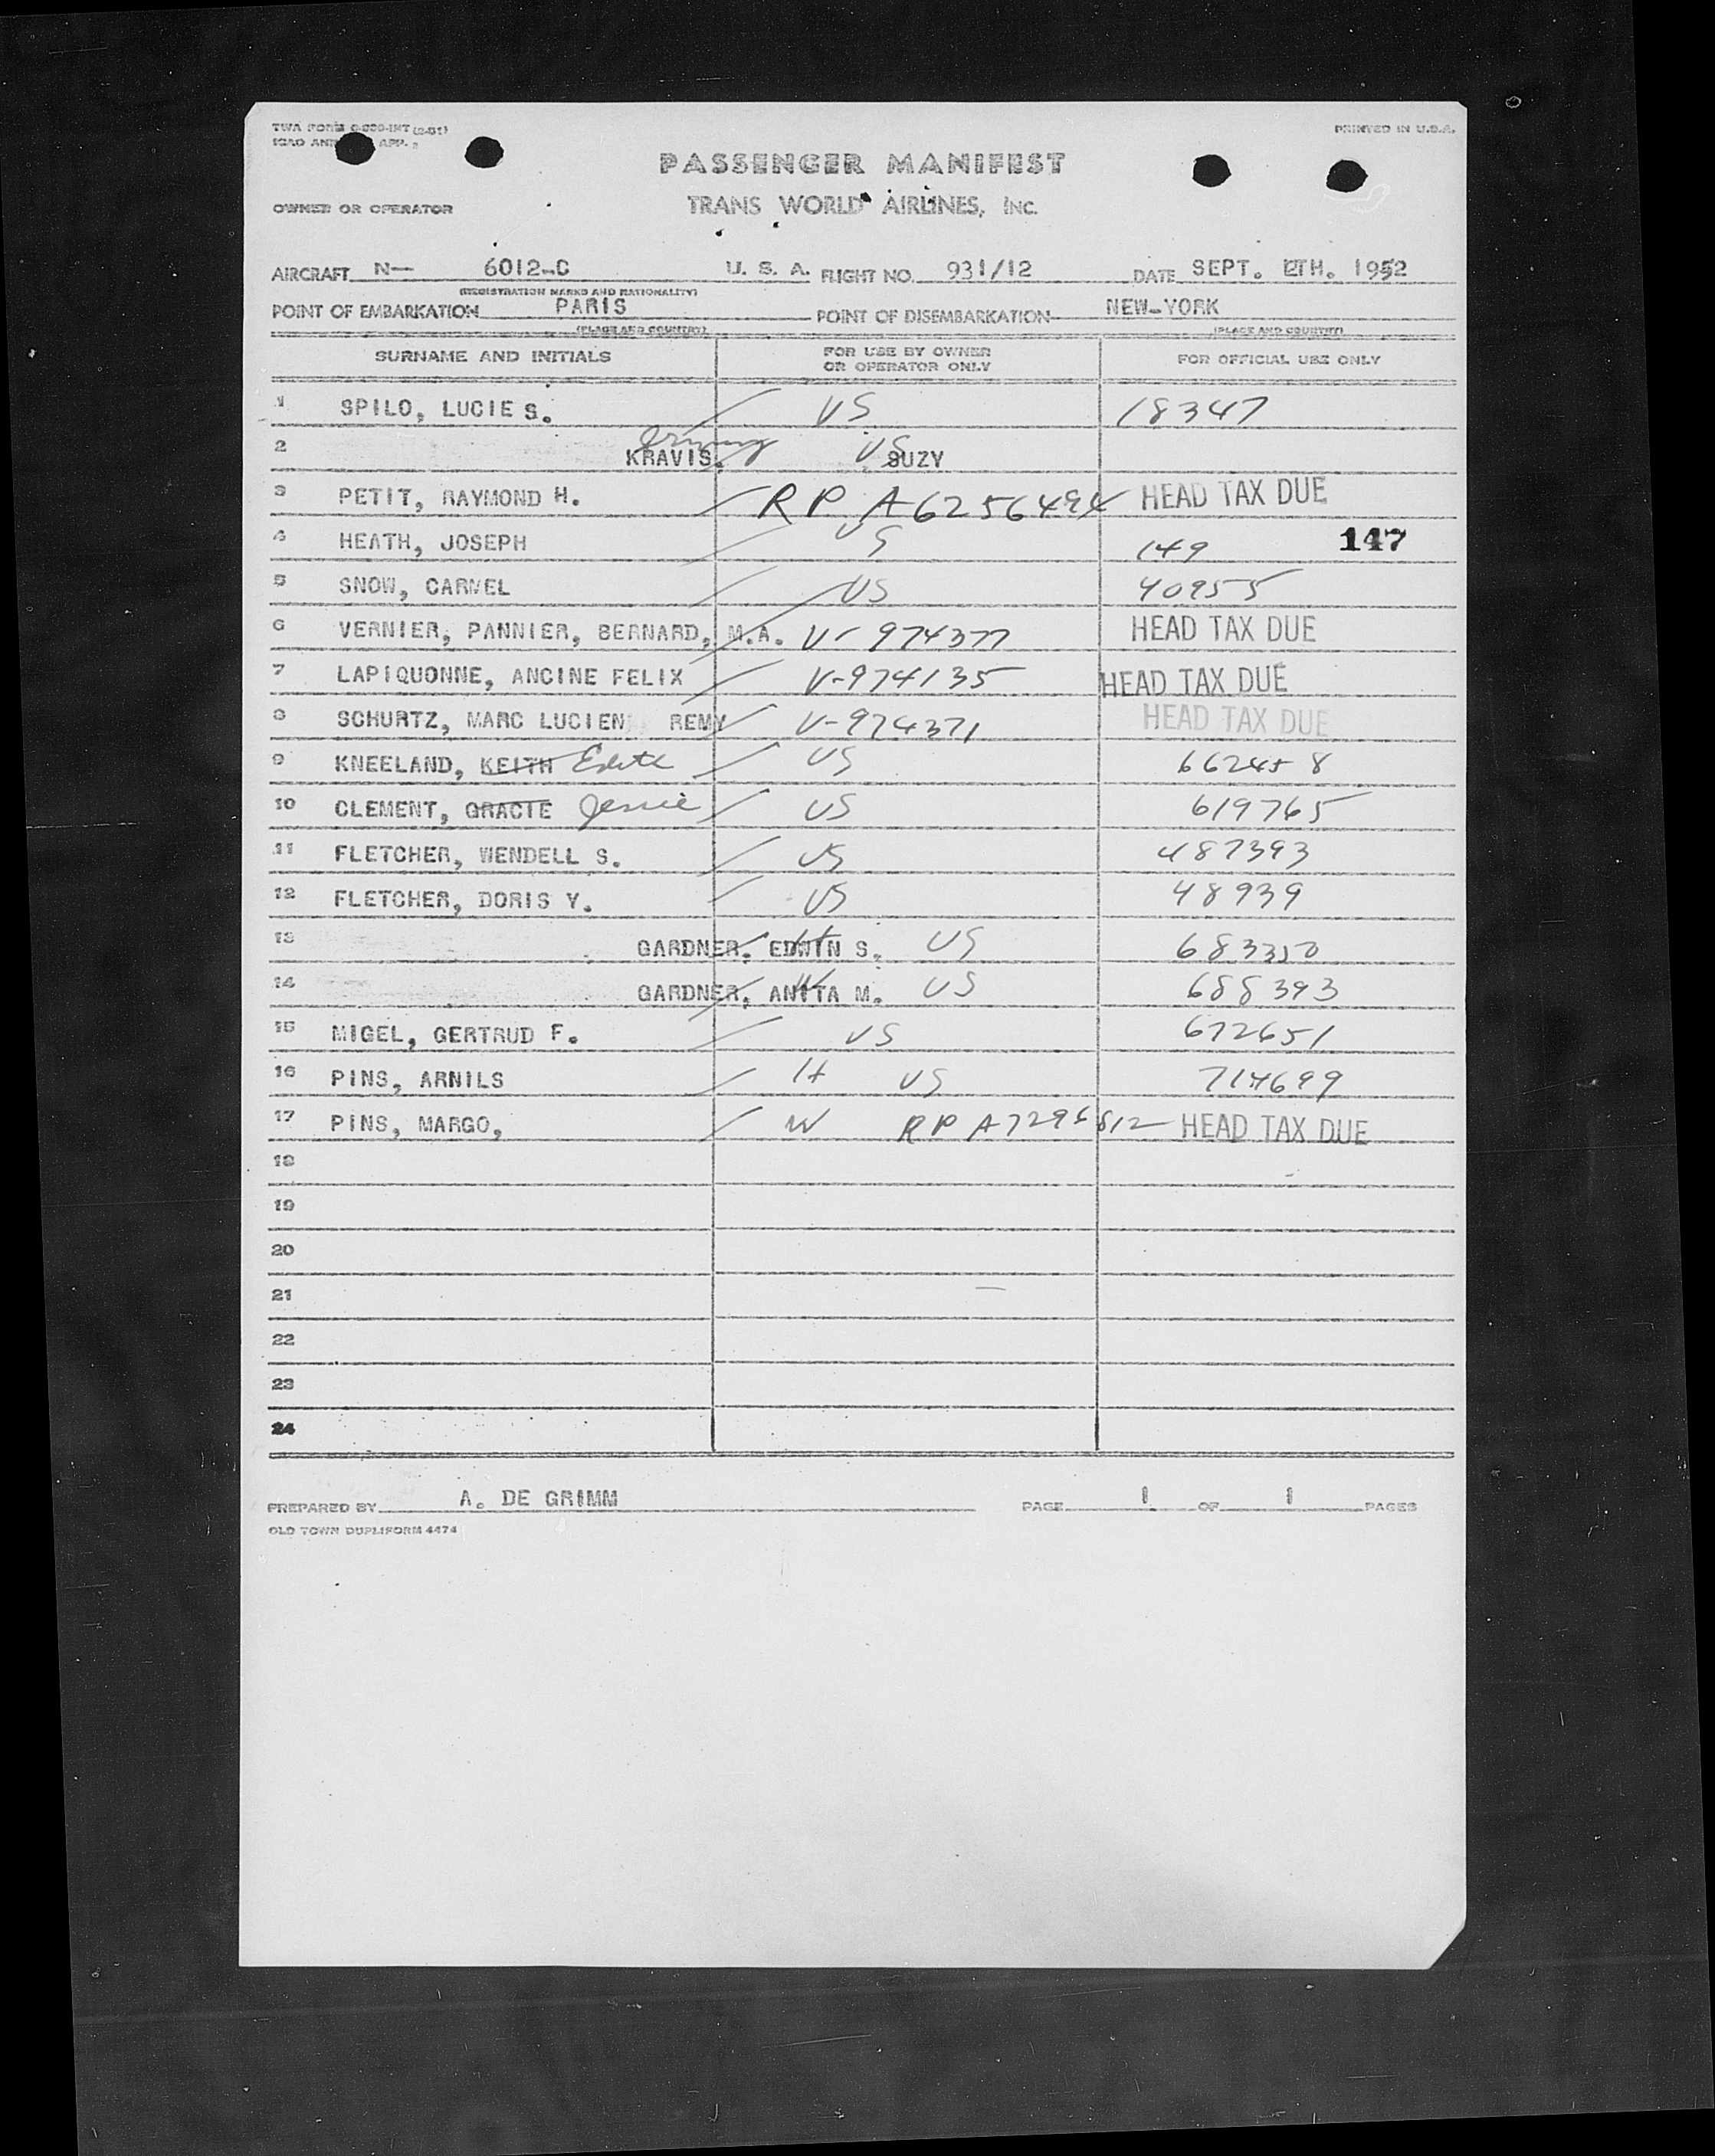 TWA FORM
PRINTED IN U.S.A.
ICAO APP.
PASSENGER MANIFEST
OWNER OR OPERATOR TRANS WORLD AIRLINES, INC.
AIRCRAFT N— 6012-C U. S. A. FLIGHT NO. 931/12 DATE SEPT. 1952
(REGISTRATION MARKS AND NATIONALITY)
POINT OF EMBARKATION PARIS POINT OF DISEMBARKATION NEW-YORK
(PLACE AND COUNTRY) (PLACE AND COUNTRY)
SURNAME AND INITIALS FOR USE BY OWNER OR OPERATOR ONLY FOR OFFICIAL USE ONLY
1 SPILO, LUCIE S. US 18347
2 KRAVIS, US SUZY
3 PETIT, RAYMOND H. RP A6256494 HEAD TAX DUE
4 HEATH, JOSEPH US 149 147
5 SNOW, CARMEL US 40955
6 VERNIER, PANNIER, BERNARD, M.A. V-974377 HEAD TAX DUE
7 LAPIQUONNE, ANCINE FELIX V-974135 HEAD TAX DUE
8 SCHURTZ, MARC LUCIEN REMY V-974371 HEAD TAX DUE
9 KNEELAND, KEITH Edith US 662458
10 CLEMENT, GRACIE Jessie US 619765
11 FLETCHER, WENDELL S. US 487393
12 FLETCHER, DORIS Y. US 48939
13 GARDNER, EDWIN S. H US 683350
14 GARDNER, ANITA M. W US 688393
15 MIGEL, GERTRUD F. US 672651
16 PINS, ARNILS H US 714699
17 PINS, MARGO, W RP A7296812 HEAD TAX DUE
18
19
20
21
22
23
24
PREPARED BY A. DE GRIMM PAGE 1 OF 1 PAGES
OLD TOWN DUPLIFORM 4474